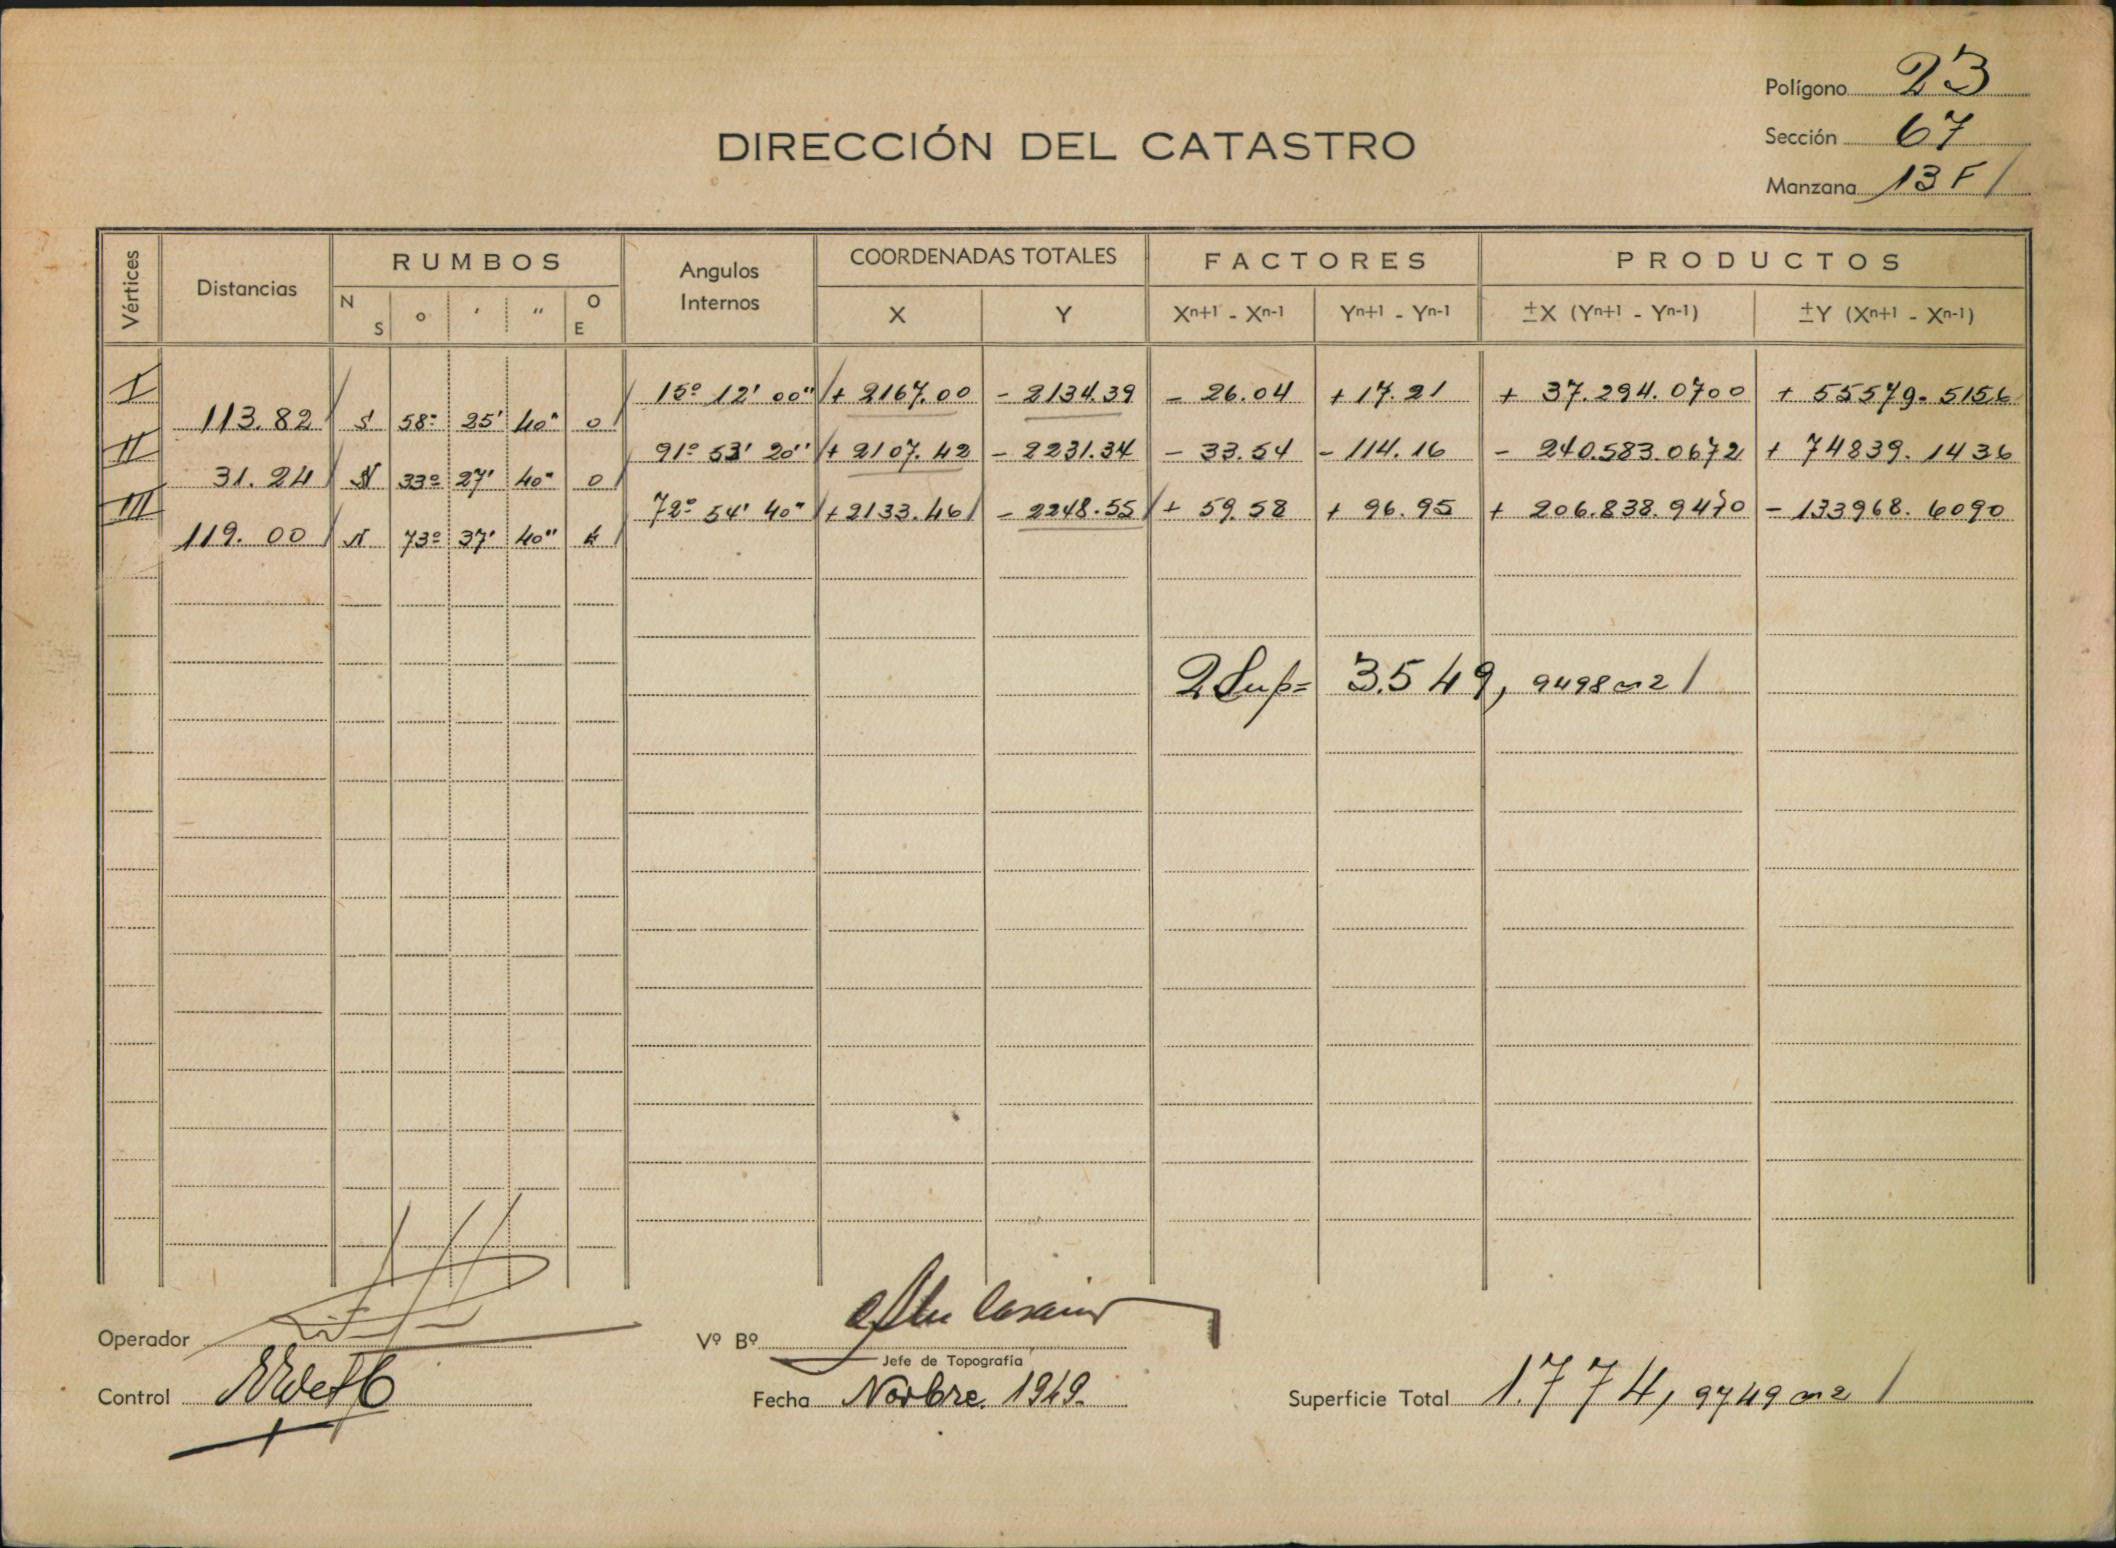 Polígono 23
DIRECCIÓN DEL CATASTRO
Sección 67
Manzana 13 F
Vértices Distancias RUMBOS Angulos Internos COORDENADAS TOTALES FACTORES PRODUCTOS
N S o ′ ″ O E X Y Xn+1 - Xn-1 Yn+1 - Yn-1 ±X (Yn+1 - Yn-1) ±Y (Xn+1 - Xn-1)
I 15º 12' 00" + 2167.00 - 2134.39 - 26.04 + 17.21 + 37.294.0700 + 55579.5156
113.82 S 58º 25' 40" O
II 91º 53' 20" + 2107.42 - 2231.34 - 33.54 - 114.16 - 240.583.0672 + 74839.1436
31.24 N 33º 27' 40" O
III 72º 54' 40" + 2133.46 - 2248.55 + 59.58 + 96.95 + 206.838.9470 - 133968.6090
119.00 N 73º 37' 40" E
2 Sup= 3.549, 9498 m2
Operador
Vº Bº
Jefe de Topografía
Control
Fecha Novbre. 1949.
Superficie Total 1.774, 9749 m2